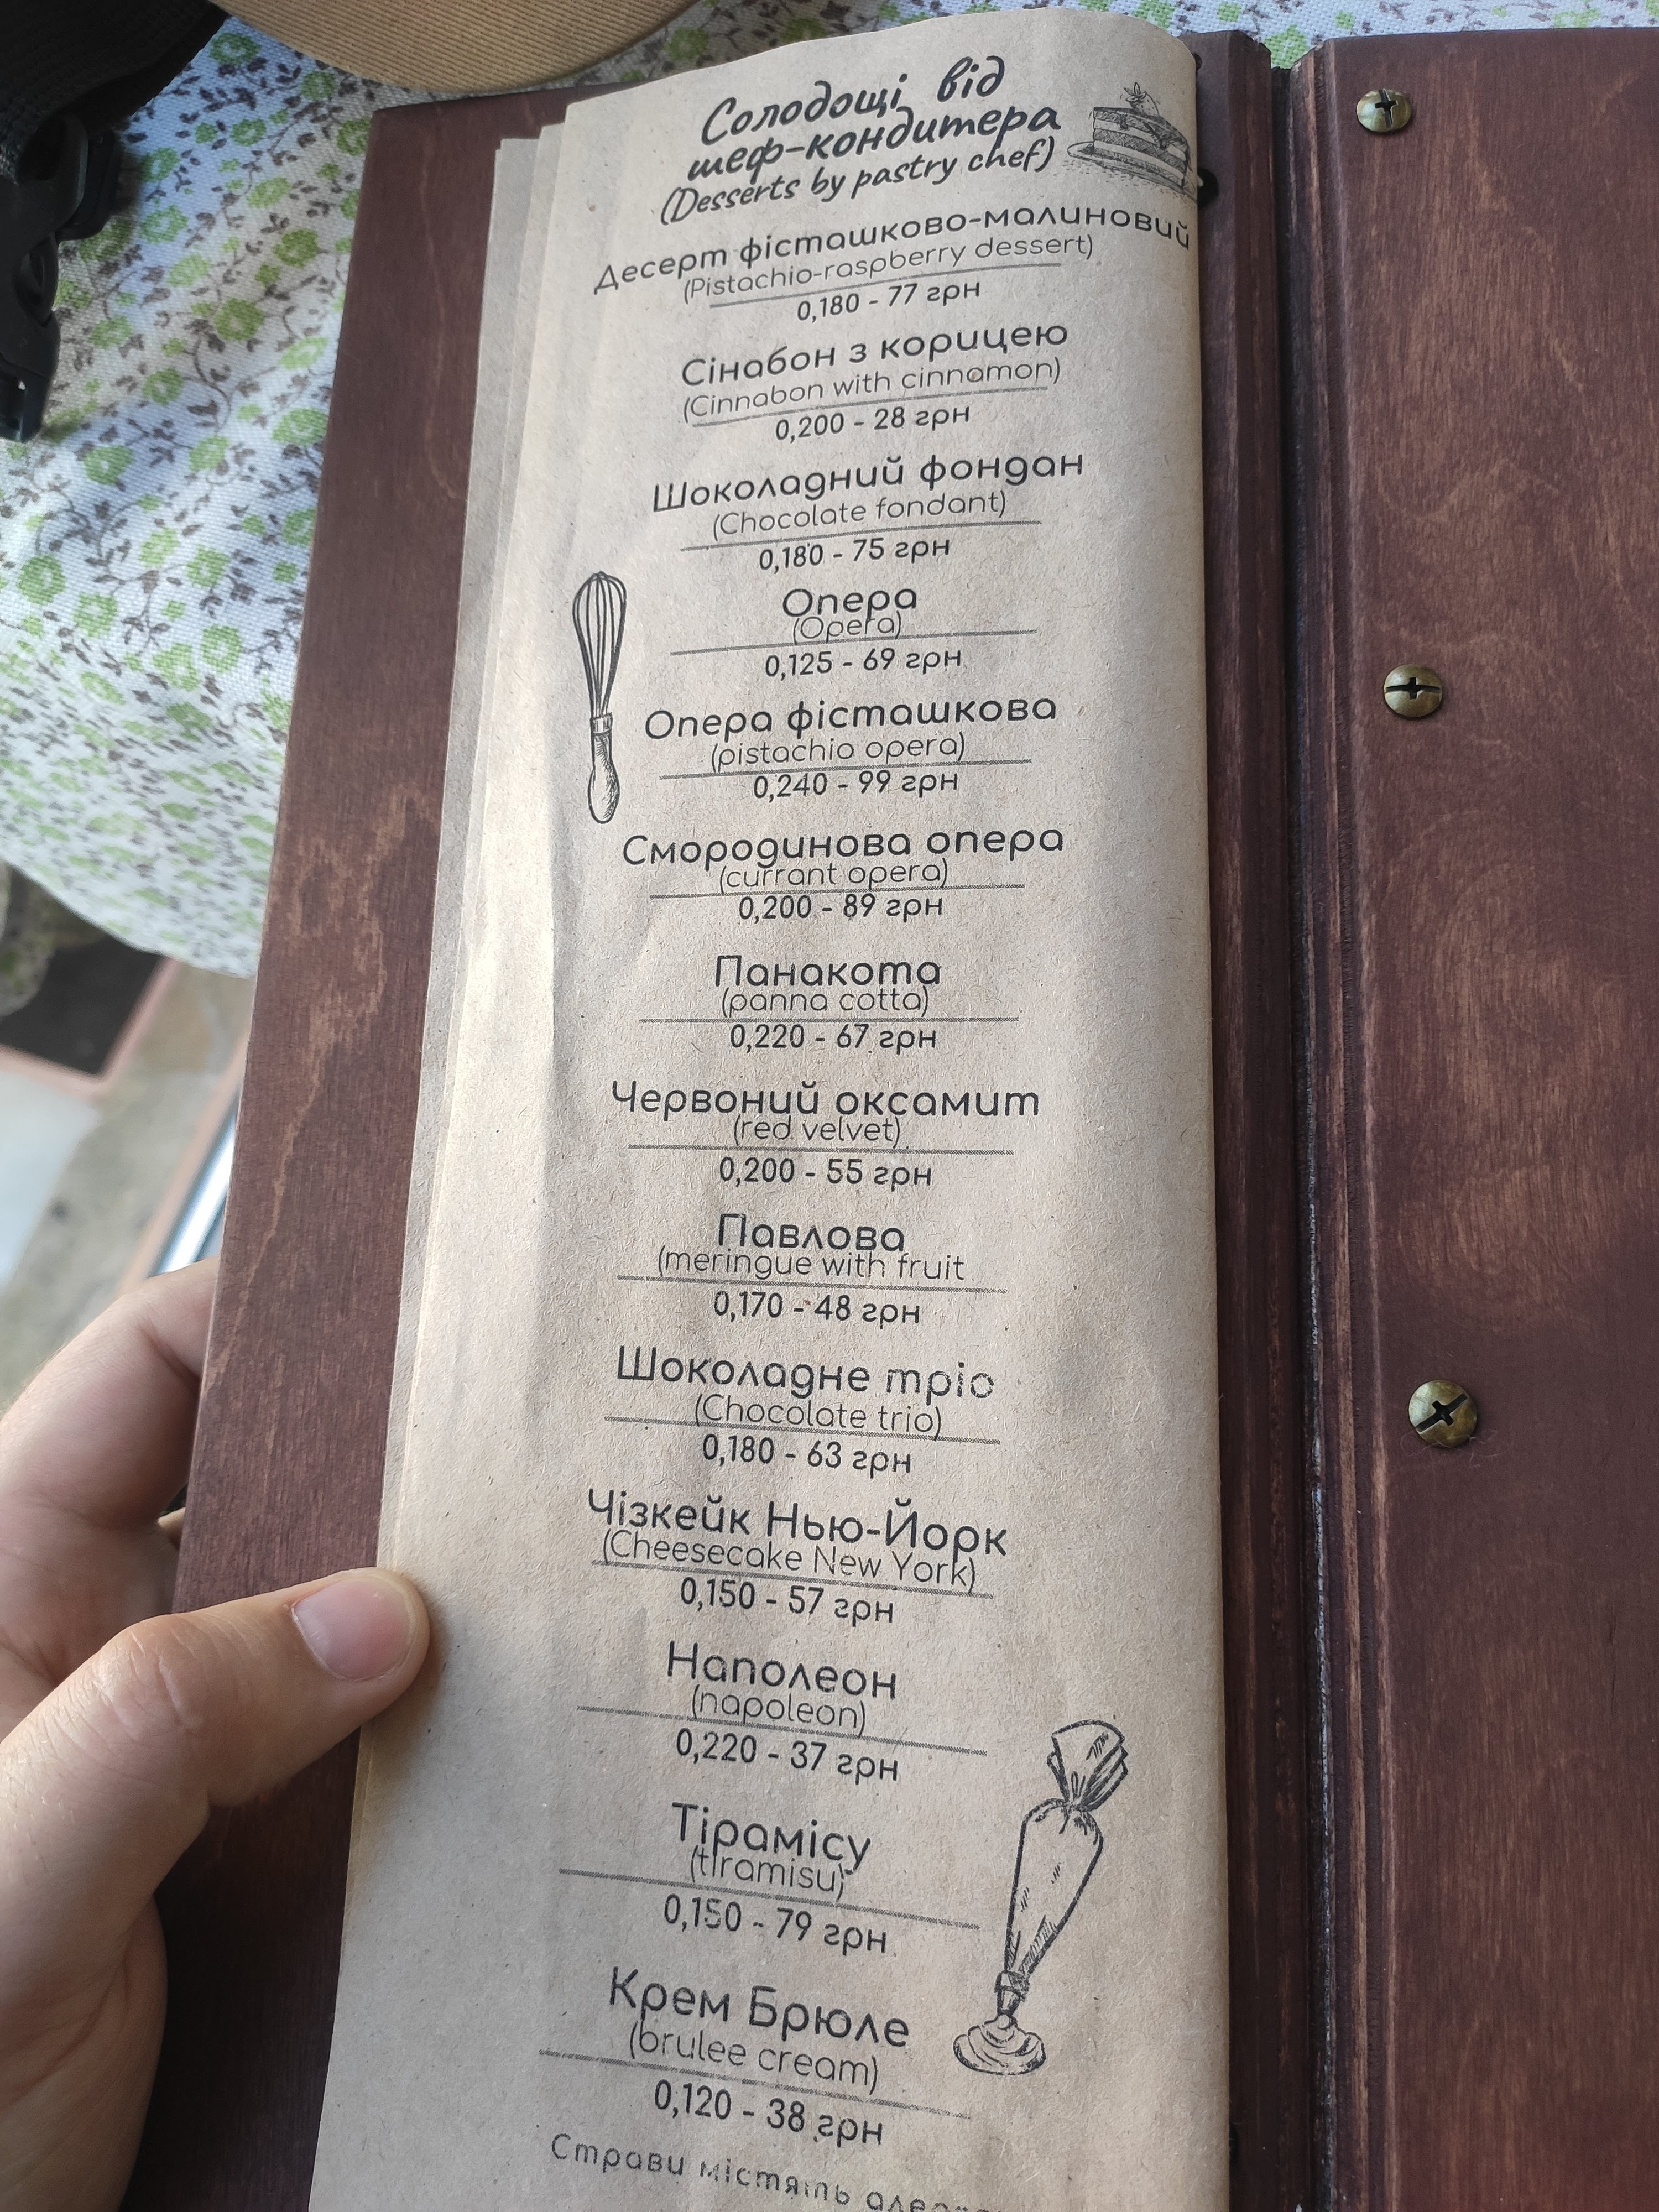 Солодощі від
шеф-кондитера
(Desserts by pastry chef)
Десерт фісташково-малиновий
(Pistachio-raspberry dessert)
0,180 - 77 грн
Сінабон з корицею
(Cinnabon with cinnamon)
0,200 - 28 грн
Шоколадний фондан
(Chocolate fondant)
0,180 - 75 грн
Опера
(Opera)
0,125 - 69 грн
Опера фісташкова
(pistachio opera)
0,240 - 99 грн
Смородинова опера
(currant opera)
0,200 - 89 грн
Панакота
(panna cotta)
0,220 - 67 грн
Червоний оксамит
(red velvet)
0,200 - 55 грн
Павлова
(meringue with fruit
0,170 - 48 грн
Шоколадне тріо
(Chocolate trio)
0,180 - 63 грн
Чізкейк Нью-Йорк
(Cheesecake New York)
0,150 - 57 грн
Наполеон
(napoleon)
0,220 - 37 грн
Тірамісу
(tIramisu)
0,150 - 79 грн
Крем Брюле
(brulee cream)
0,120 - 38 грн
Страви містять